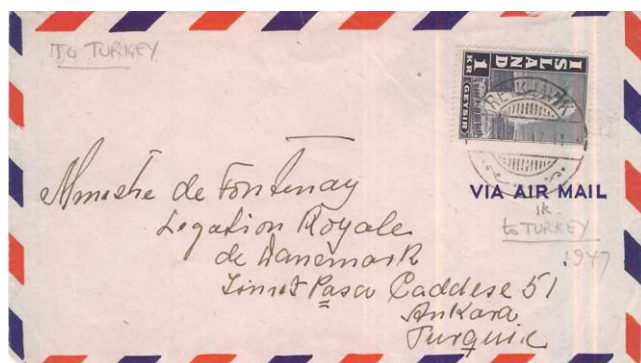 TO TURKEY
ISLAND
1
KR
GEYSIR
REYKJAVIK
VIA AIR MAIL
1k.
to TURKEY
1947
Ministre de Fontenay
Legation Royale
de Danemark
Pasa Caddese 51
Ankara
Turquie